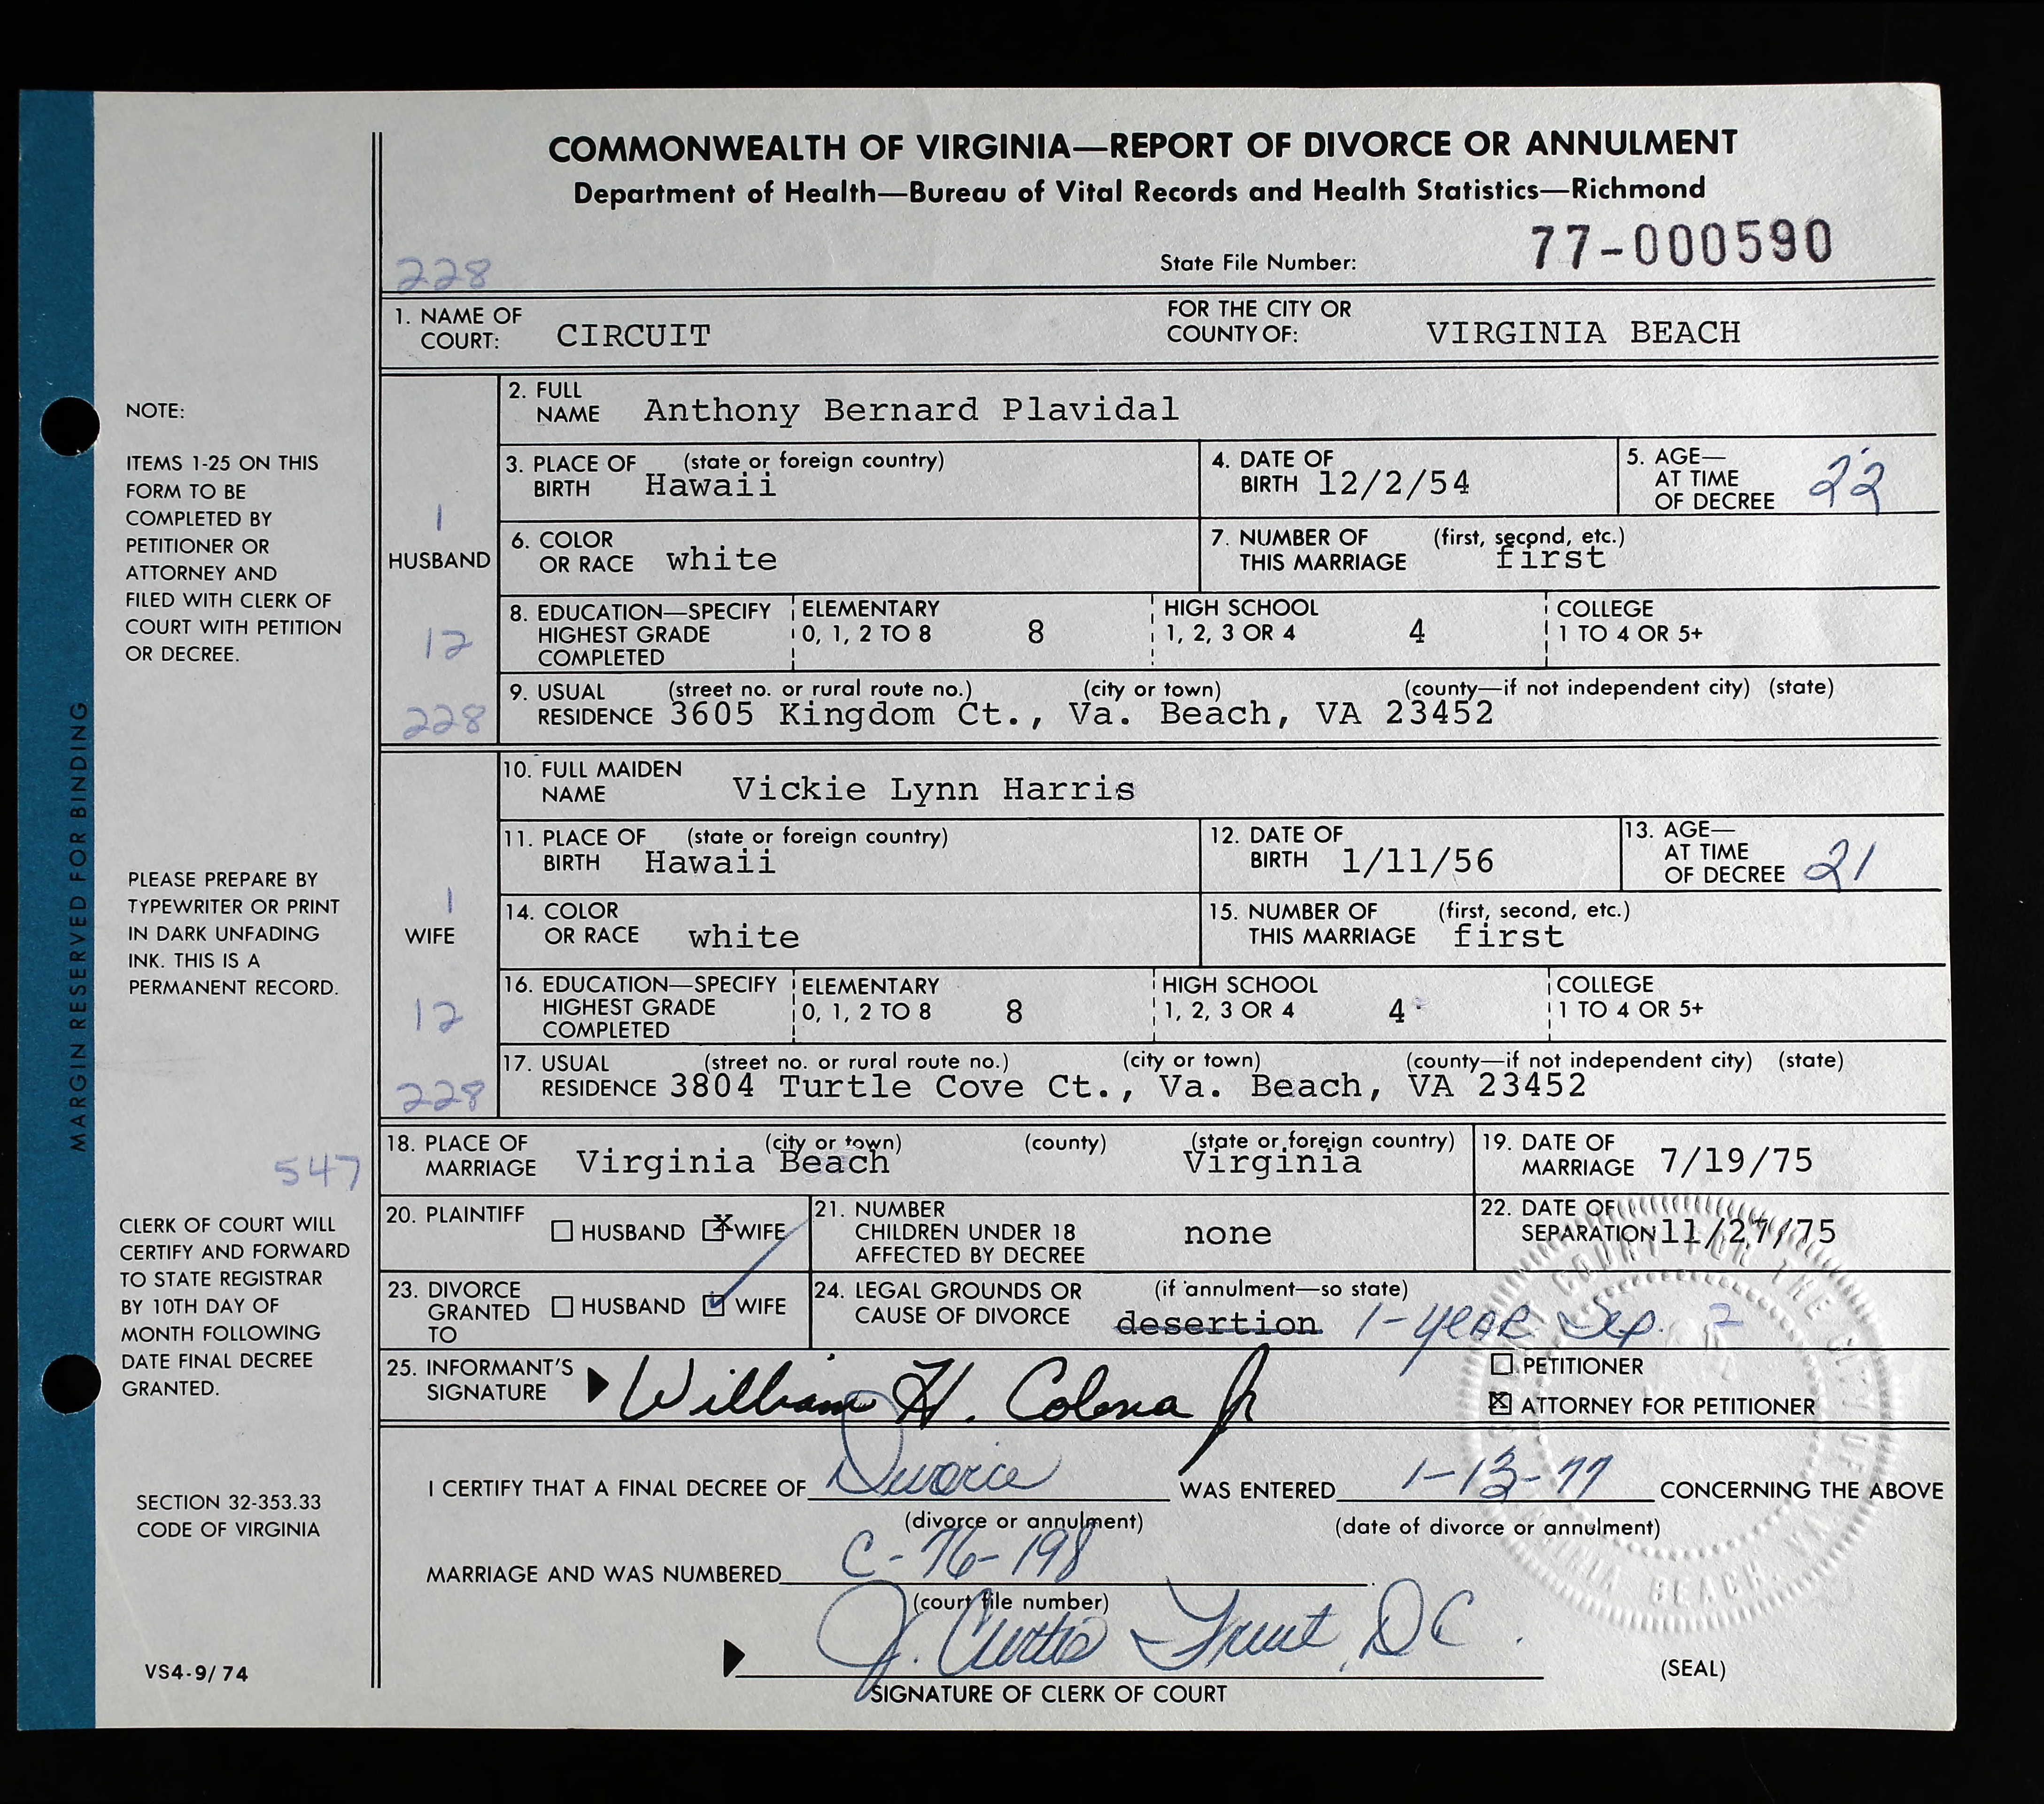 COMMONWEALTH OF VIRGINIA—REPORT OF DIVORCE OR ANNULMENT
Department of Health—Bureau of Vital Records and Health Statistics—Richmond
228
State File Number: 77-000590
1. NAME OF COURT: CIRCUIT
FOR THE CITY OR COUNTY OF: VIRGINIA BEACH
1
HUSBAND
12
228
2. FULL NAME Anthony Bernard Plavidal
3. PLACE OF BIRTH (state or foreign country) Hawaii
4. DATE OF BIRTH 12/2/54
5. AGE— AT TIME OF DECREE 22
6. COLOR OR RACE white
7. NUMBER OF THIS MARRIAGE (first, second, etc.) first
8. EDUCATION—SPECIFY HIGHEST GRADE COMPLETED
ELEMENTARY 0, 1, 2 TO 8 8
HIGH SCHOOL 1, 2, 3 OR 4 4
COLLEGE 1 TO 4 OR 5+
9. USUAL RESIDENCE (street no. or rural route no.) (city or town) (county—if not independent city) (state)
3605 Kingdom Ct., Va. Beach, VA 23452
1
WIFE
12
228
10. FULL MAIDEN NAME Vickie Lynn Harris
11. PLACE OF BIRTH (state or foreign country) Hawaii
12. DATE OF BIRTH 1/11/56
13. AGE— AT TIME OF DECREE 21
14. COLOR OR RACE white
15. NUMBER OF THIS MARRIAGE (first, second, etc.) first
16. EDUCATION—SPECIFY HIGHEST GRADE COMPLETED
ELEMENTARY 0, 1, 2 TO 8 8
HIGH SCHOOL 1, 2, 3 OR 4 4
COLLEGE 1 TO 4 OR 5+
17. USUAL RESIDENCE (street no. or rural route no.) (city or town) (county—if not independent city) (state)
3804 Turtle Cove Ct., Va. Beach, VA 23452
547
18. PLACE OF MARRIAGE (city or town) (county) (state or foreign country)
Virginia Beach Virginia
19. DATE OF MARRIAGE 7/19/75
20. PLAINTIFF HUSBAND X WIFE
21. NUMBER CHILDREN UNDER 18 AFFECTED BY DECREE none
22. DATE OF SEPARATION 11/27/75
23. DIVORCE GRANTED TO HUSBAND WIFE
24. LEGAL GROUNDS OR CAUSE OF DIVORCE (if annulment—so state)
desertion 1-year Sep. 2
25. INFORMANT'S SIGNATURE William H. Colona Jr
PETITIONER
X ATTORNEY FOR PETITIONER
I CERTIFY THAT A FINAL DECREE OF Divorce WAS ENTERED 1-13-77 CONCERNING THE ABOVE
(divorce or annulment) (date of divorce or annulment)
MARRIAGE AND WAS NUMBERED C-76-198
(court file number)
J. Curtis Fruit, DC
SIGNATURE OF CLERK OF COURT
(SEAL)
COURT FOR THE CITY OF
VIRGINIA BEACH, VA.
MARGIN RESERVED FOR BINDING
NOTE:
ITEMS 1-25 ON THIS
FORM TO BE
COMPLETED BY
PETITIONER OR
ATTORNEY AND
FILED WITH CLERK OF
COURT WITH PETITION
OR DECREE.
PLEASE PREPARE BY
TYPEWRITER OR PRINT
IN DARK UNFADING
INK. THIS IS A
PERMANENT RECORD.
CLERK OF COURT WILL
CERTIFY AND FORWARD
TO STATE REGISTRAR
BY 10TH DAY OF
MONTH FOLLOWING
DATE FINAL DECREE
GRANTED.
SECTION 32-353.33
CODE OF VIRGINIA
VS4-9/74